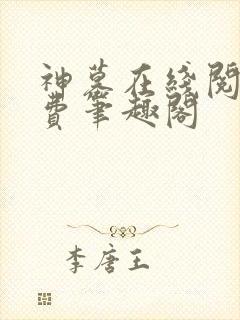 神墓在线阅
费笔趣阁
李唐王